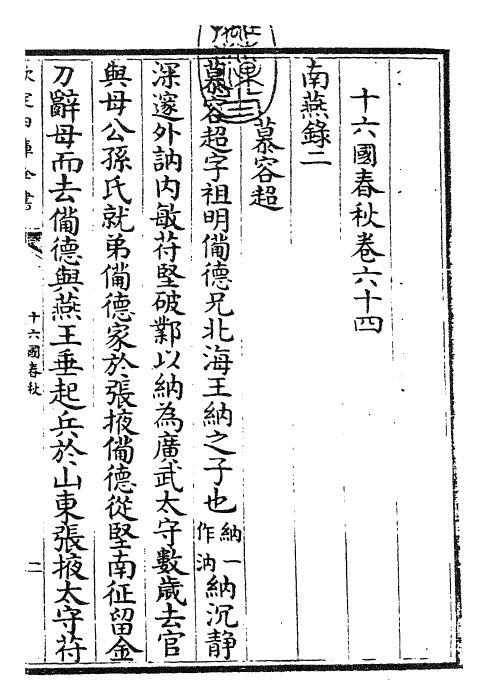 十六國春秋卷六十四
南燕錄二
慕容超
慕容超字祖明備德兄北海王納之子也納一作汭納沉静
深邃外訥内敏苻堅破鄴以納為廣武太守數歲去官
與母公孫氏就弟備德家於張掖備德從堅南征留金
刀辭母而去備德與燕王垂起兵於山東張掖太守苻
欽定四庫全書
十六國春秋
二